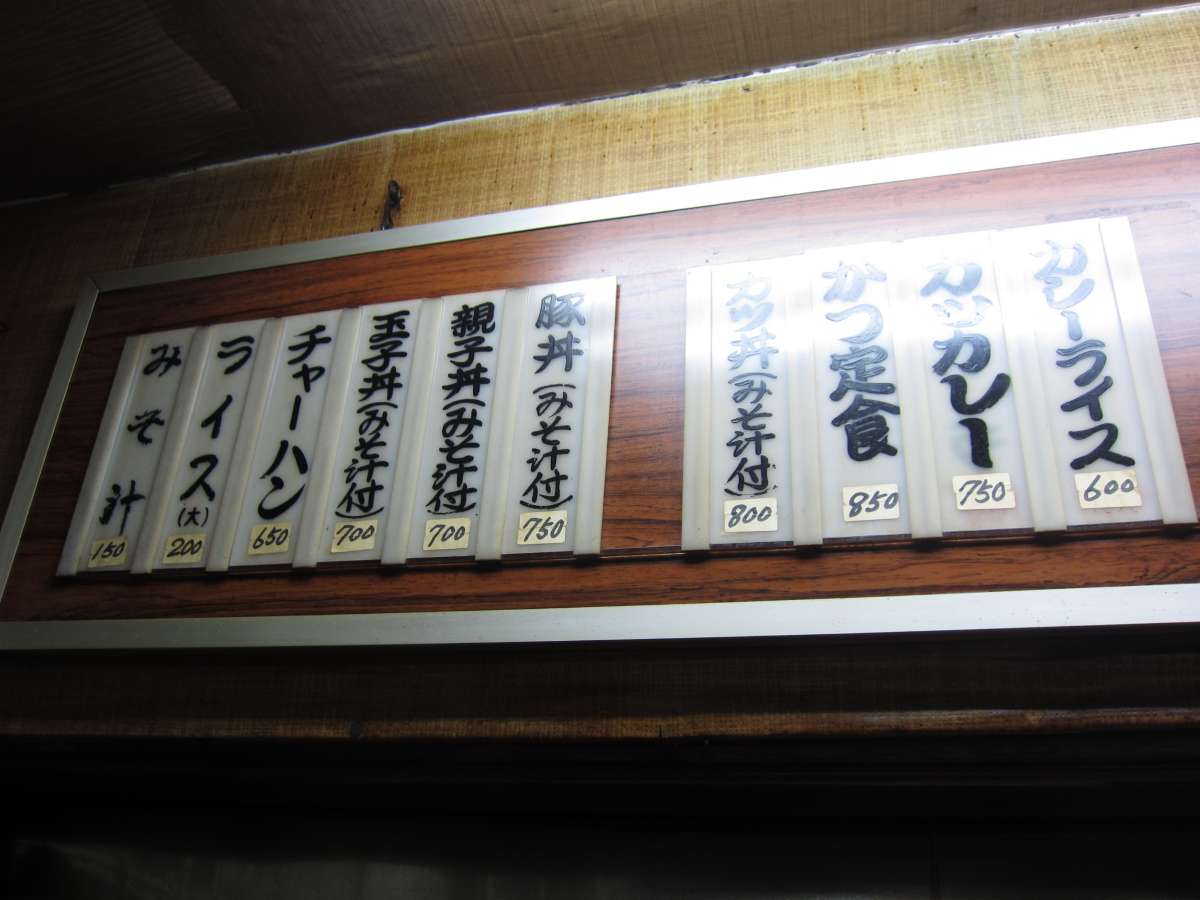 カレーライス
600
カツカレー
750
かつ定食
850
カツ丼(みそ汁付)
800
豚丼(みそ汁付)
750
親子丼(みそ汁付)
700
玉子丼(みそ汁付)
700
チャーハン
650
ライス(大)
200
みそ汁
150